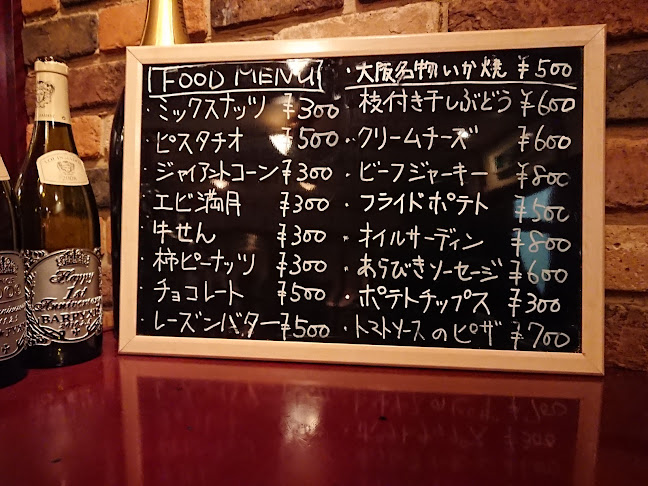 FOOD MENU
・ミックスナッツ ¥300
・ピスタチオ ¥500
・ジャイアントコーン ¥300
・エビ満月 ¥300
・牛せん ¥300
・柿ピーナッツ ¥300
・チョコレート ¥500
・レーズンバター ¥500
・大阪名物いか焼 ¥500
枝付き干しぶどう ¥600
・クリームチーズ ¥600
・ビーフジャーキー ¥800
・フライドポテト ¥500
・オイルサーディン ¥800
・あらびきソーセージ ¥600
・ポテトチップス ¥300
・トマトソースのピザ ¥700
Happy
1st
Anniversary